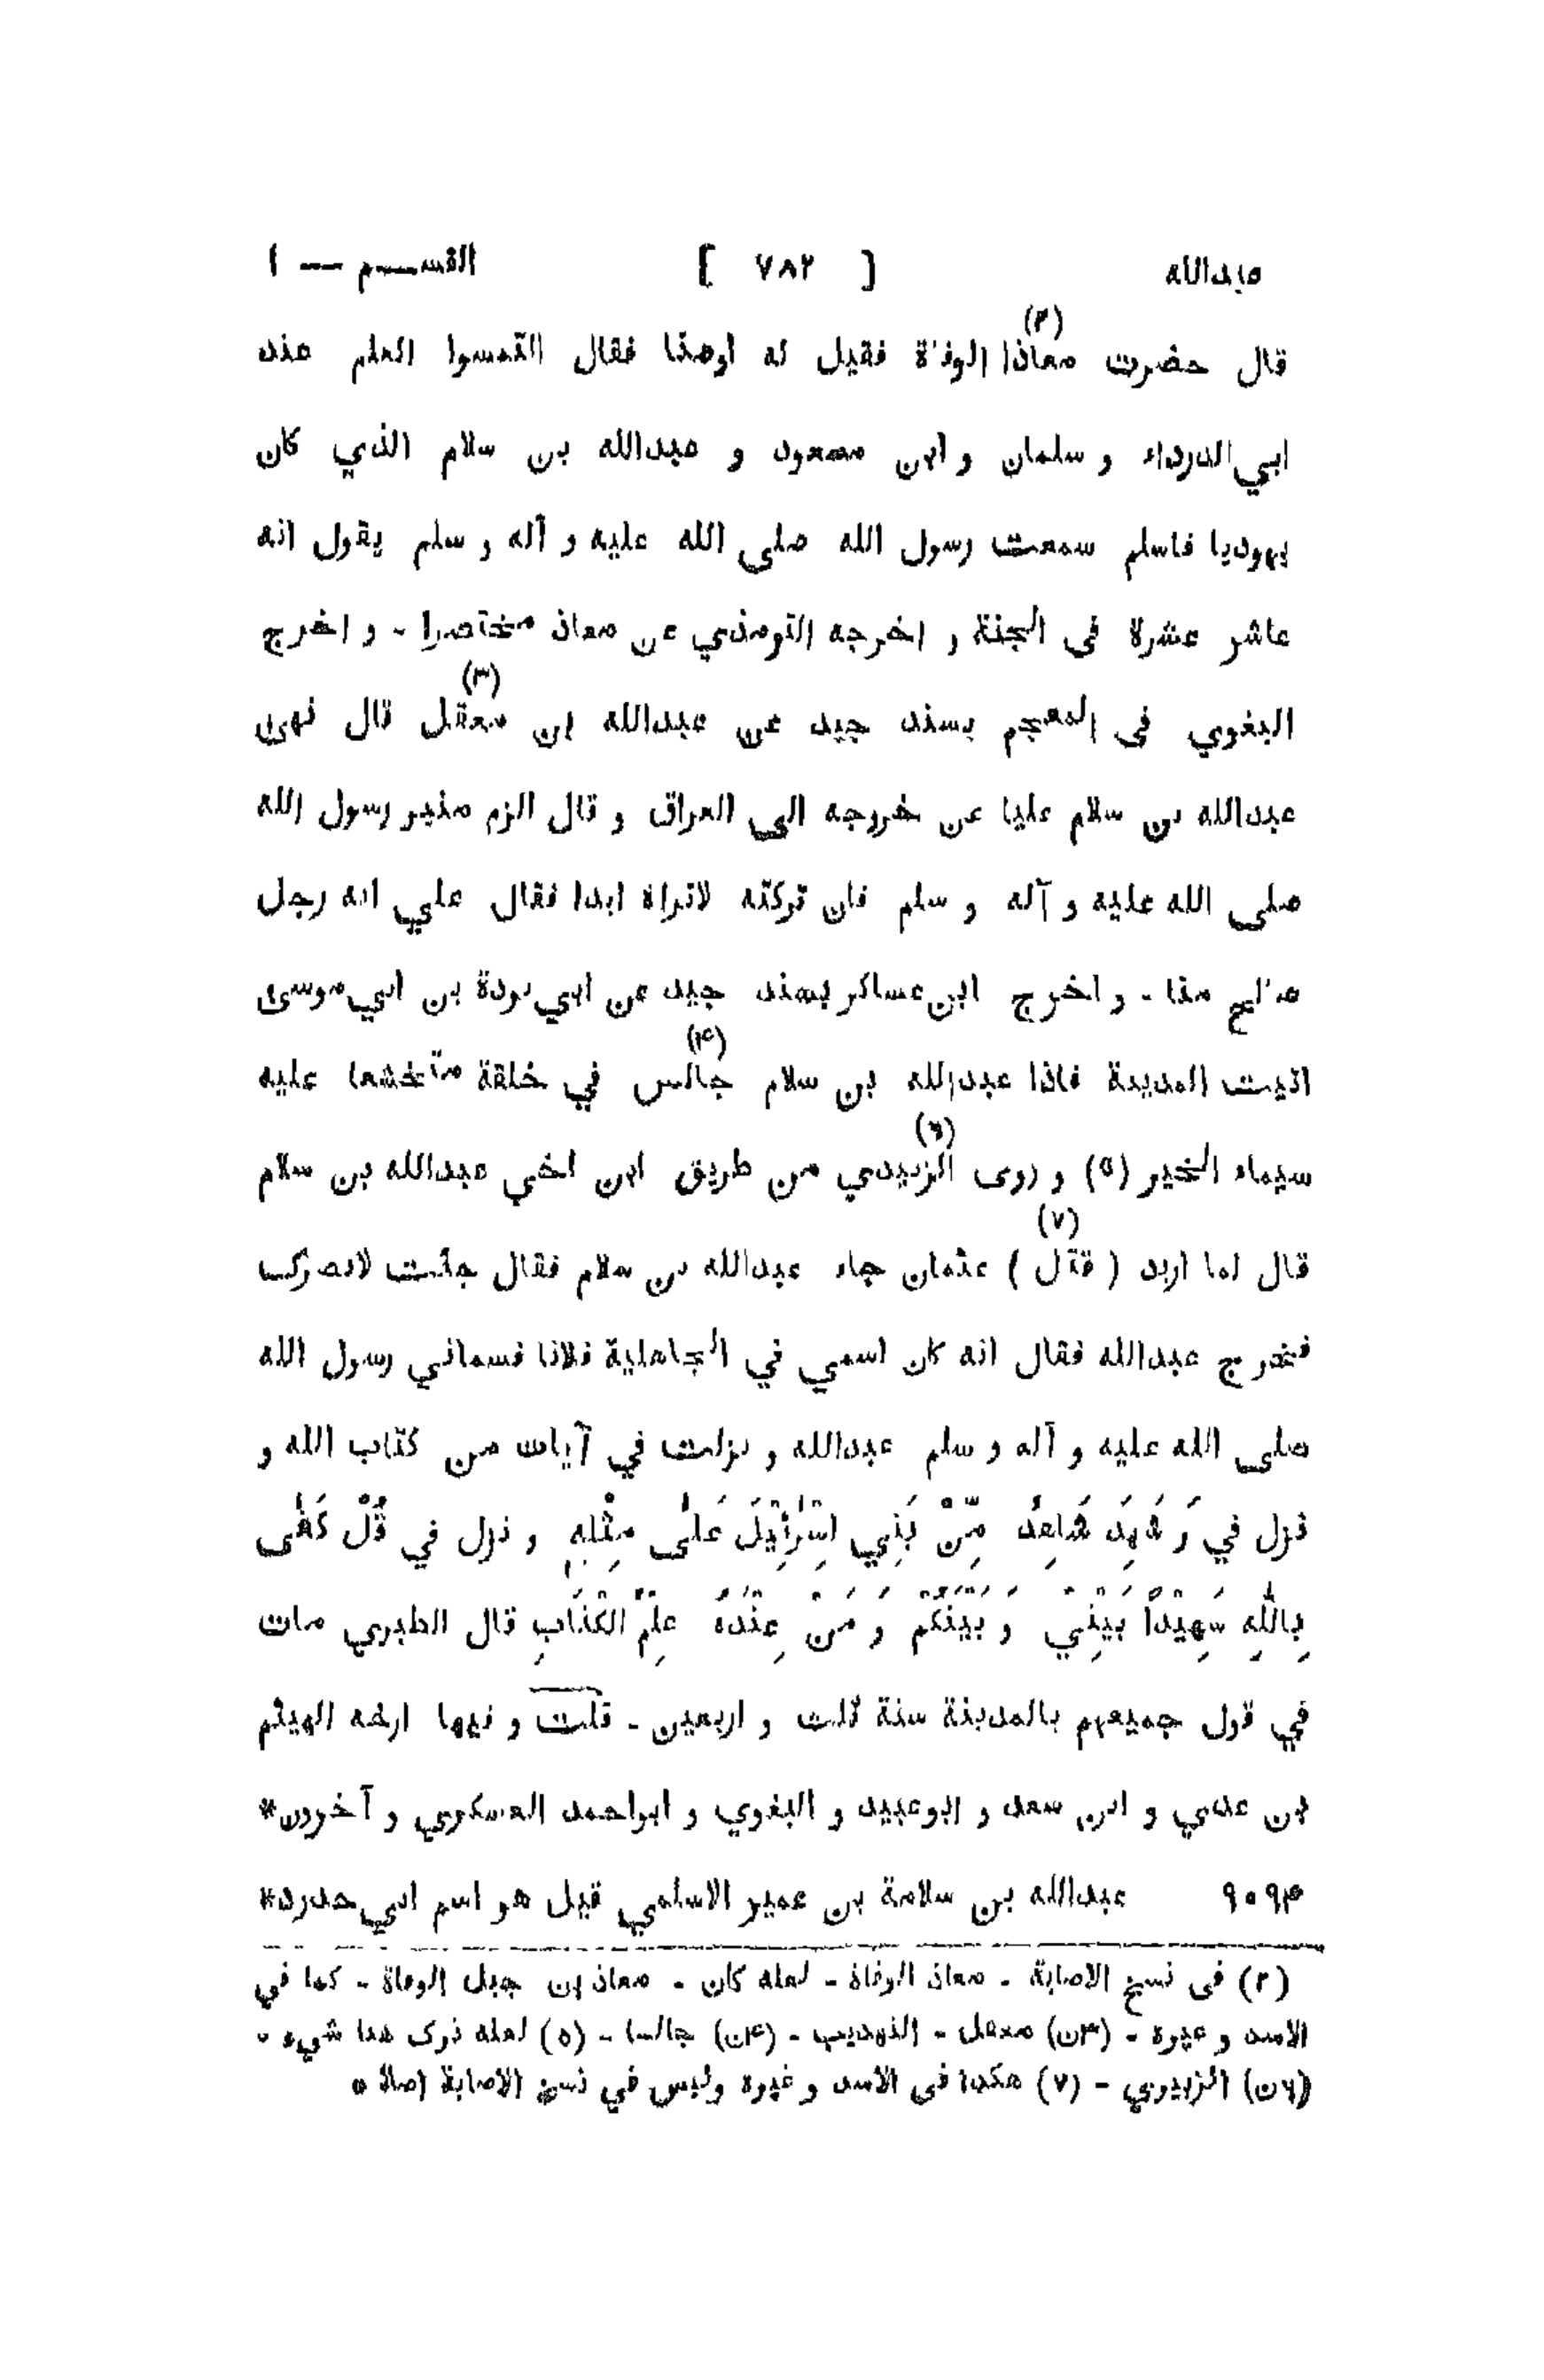 عبدالله [ ٧٨٢ ] القســـم — ١
قال حضرت معاذا (٢) الوفاة فقيل له اوصنا فقال التمسوا العلم عند
ابي الدرداء و سلمان و ابن مسعود و عبدالله بن سلام الذي كان
يهوديا فاسلم سمعت رسول الله صلى الله عليه و آله و سلم يقول انه
عاشر عشرة في الجنة و اخرجه الترمذي عن معاذ مختصرا - و اخرج
البغوي في المعجم بسند جيد عن عبدالله بن معقل (٣) قال نهى
عبدالله بن سلام عليا عن خروجه الى العراق و قال الزم منبر رسول الله
صلى الله عليه و آله و سلم فان تركته لاتراه ابدا فقال علي انه رجل
صالح منا - و اخرج ابن عساكر بسند جيد عن ابي بردة بن ابي موسى
اتيت المدينة فاذا عبدالله بن سلام جالس (۴) في حلقة متخشعا عليه
سيماء الخير (٥) و روى الزبيدي (٦) من طريق ابن اخي عبدالله بن سلام
قال لما اريد ( قتل (٧) ) عثمان جاء عبدالله بن سلام فقال جئت لانصرك
فخرج عبدالله فقال انه كان اسمي في الجاهلية فلانا فسماني رسول الله
صلى الله عليه و آله و سلم عبدالله و نزلت في آيات من كتاب الله و
نزل في وَ شَهِدَ شَاهِدٌ مِّنْ بَنِي اِسْرَائِيْلَ عَلٰى مِثْلِهٖ و نزل في قُلْ كَفٰى
بِاللّٰهِ شَهِيْداً بَيْنِيْ وَ بَيْنَكُمْ وَ مَنْ عِنْدَهُ عِلْمُ الْكِتَابِ قال الطبري مات
في قول جميعهم بالمدينة سنة ثلث و اربعين - قلت و فيها ارخه الهيثم
بن عدي و ابن سعد و ابوعبيد و البغوي و ابواحمد العسكري و آخرون*
٩٠٩۴ عبدالله بن سلامة بن عمير الاسلمي قيل هو اسم ابي حدرد*
(٢) في نسخ الاصابة - معاذ الوفاة - لعله كان - معاذ بن جبل الوفاة - كما في
الاسد و غيره - (٣ن) معقل - التهذيب - (۴ن) جالسا - (٥) لعله ترك هنا شيء -
(٦ن) الزبيري - (٧) هكذا في الاسد و غيره وليس في نسخ الاصابة اصلا *